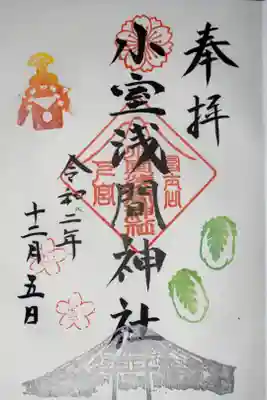 奉拝
小室浅間神社
令和二年
十二月五日